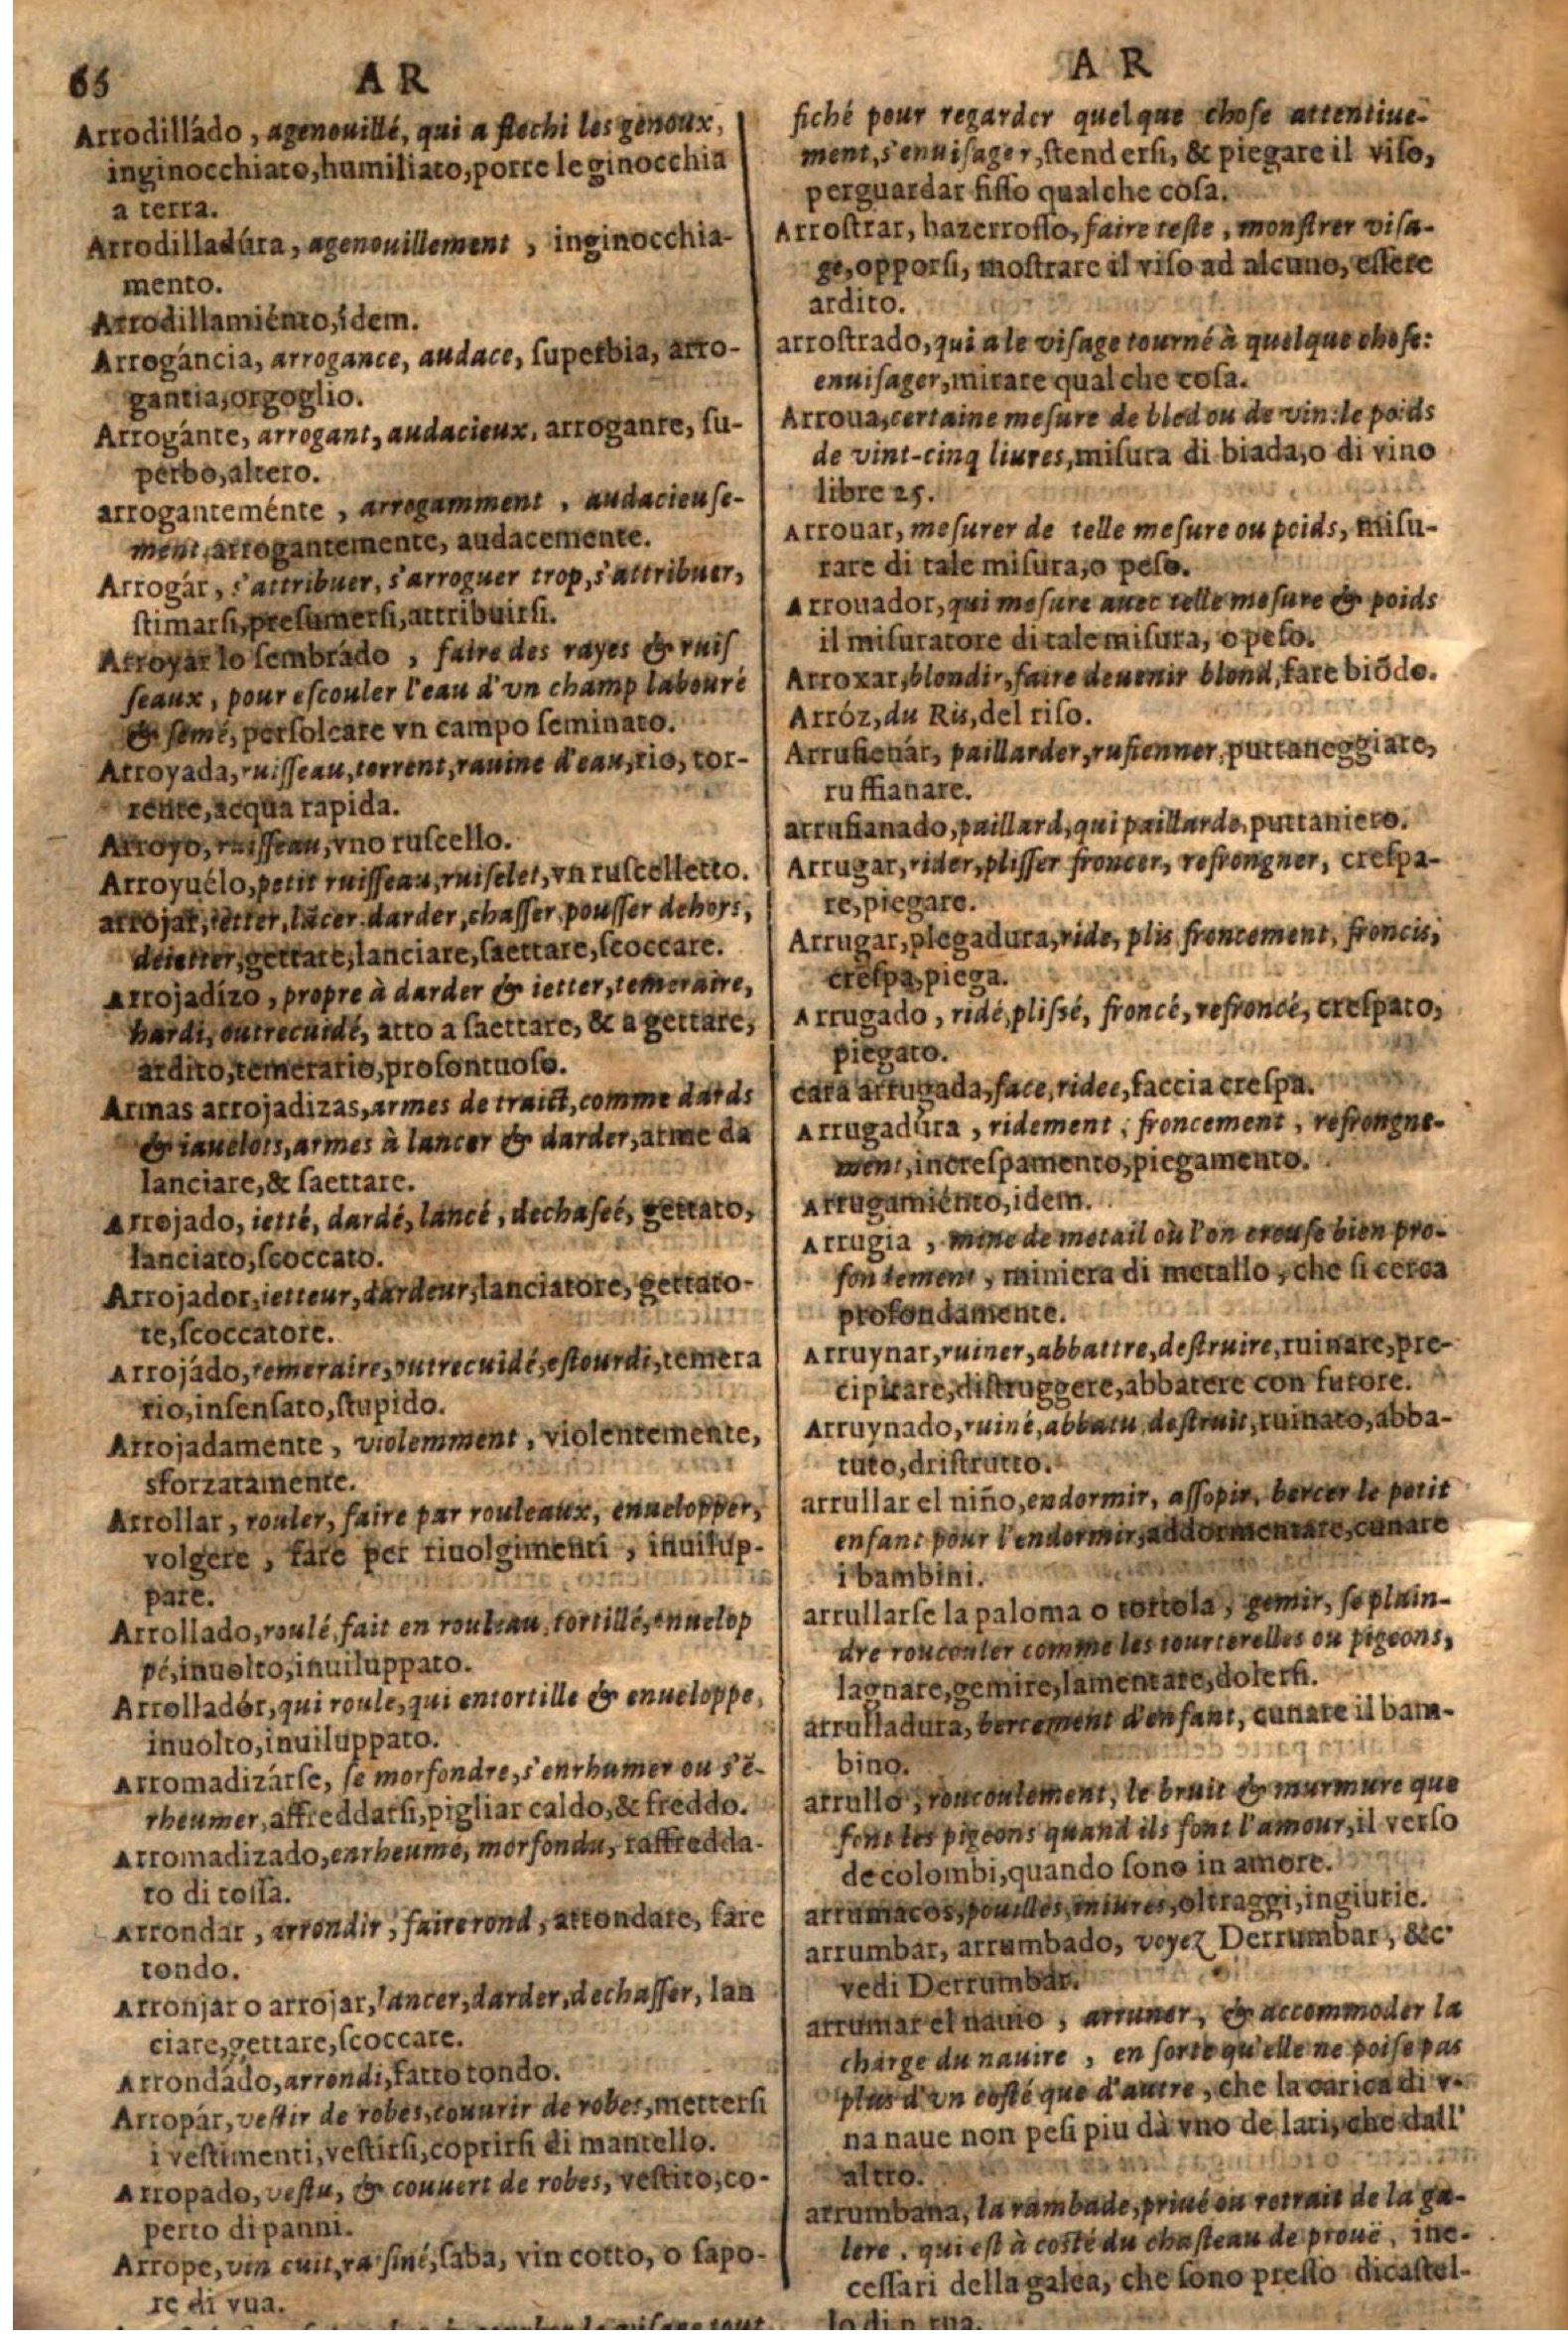 66 AR
Arrodilládo, agenouillé, qui a flechi les genoux,
inginocchiato, humiliato, porre le ginocchia
a terra.
Arrodilladúra, agenouillement, inginocchia-
mento.
Arrodillamiénto, idem.
Arrogáncia, arrogance, audace, superbia, arro-
gantia, orgoglio.
Arrogánte, arrogant, audacieux, arrogante, su-
perbo, altero.
arroganteménte, arrogamment, audacieuse-
ment, arrogantemente, audacemente.
Arrogár, s'attribuer, s'arroguer trop, s'attribuer,
stimarsi, presumersi, attribuirsi.
Arroyar lo sembrádo, faire des rayes & ruis
seaux, pour escouler l'eau d'vn champ labouré
& semé, persolcare vn campo seminato.
Arroyada, ruisseau, torrent, rauine d'eau, rio, tor-
rente, acqua rapida.
Arroyo, ruisseau, vno ruscello.
Arroyuélo, petit ruisseau, ruiselet, vn ruscelletto.
arrojar, ietter, lãcer, darder, chasser, pousser dehors,
deietter, gettare, lanciare, saettare, scoccare.
Arrojadízo, propre à darder & ietter, temeraire,
hardi, outrecuidé, atto a saettare, & a gettare,
ardito, temerario, prosontuoso.
Armas arrojadizas, armes de traict, comme dards
& iauelots, armes à lancer & darder, arme da
lanciare, & saettare.
Arrojado, ietté, dardé, lancé, dechassé, gettato,
lanciato, scoccato.
Arrojador, ietteur, dardeur, lanciatore, gettato-
re, scoccatore.
Arrojádo, temeraire, outrecuidé, estourdi, temera
rio, insensato, stupido.
Arrojadamente, violemment, violentemente,
sforzatamente.
Arrollar, rouler, faire par rouleaux, enuelopper,
volgere, fare per riuolgimenti, inuilup-
pare.
Arrollado, roulé, fait en rouleau, tortillé, enuelop
pé, inuolto, inuiluppato.
Arrolladór, qui roule, qui entortille & enueloppe,
inuolto, inuiluppato.
Arromadizárse, se morfondre, s'enrhumer ou s'ē-
rheumer, affreddarsi, pigliar caldo, & freddo.
Arromadizado, enrheumé, morfondu, raffredda-
to di tossa.
Arrondar, arrondir, faire rond, attondare, fare
tondo.
Arronjar o arrojar, lancer, darder, dechasser, lan
ciare, gettare, scoccare.
Arrondádo, arrondi, fatto tondo.
Arropár, vestir de robes, couurir de robes, mettersi
i vestimenti, vestirsi, coprirsi di mantello.
Arropado, vestu, & couuert de robes, vestito, co-
perto di panni.
Arrope, vin cuit, raisiné, saba, vin cotto, o sapo-
re di vua.
AR
fiché pour regarder quelque chose attentiue-
ment, s'enuisager, stendersi, & piegare il viso,
perguardar fisso qualche cosa.
Arrostrar, hazer rosso, faire teste, monstrer visa-
ge, opporsi, mostrare il viso ad alcuno, essere
ardito.
arrostrado, qui a le visage tourné à quelque chose:
enuisager, mirare qualche cosa.
Arroua, certaine mesure de bled ou de vin: le poids
de vint-cinq liures, misura di biada, o di vino
libre 25.
Arrouar, mesurer de telle mesure ou poids, misu-
rare di tale misura, o peso.
Arrouador, qui mesure auec telle mesure & poids
il misuratore di tale misura, o peso.
Arroxar, blondir, faire deuenir blond, fare biōdo.
Arróz, du Ris, del riso.
Arrufienár, paillarder, rufienner, puttaneggiare,
ruffianare.
arrufianado, paillard, qui paillarde, puttaniero.
Arrugar, rider, plisser froncer, refrongner, crespa-
re, piegare.
Arrugar, plegadura, ride, plis froncement, froncis,
crespa, piega.
Arrugado, ridé, plissé, froncé, refroncé, crespato,
piegato.
cara arrugada, face, ridee, faccia crespa.
Arrugadúra, ridement, froncement, refrongne-
ment, increspamento, piegamento.
Arrugamiénto, idem.
Arrugia, mine de metail où l'on creuse bien pro-
fondement, miniera di metallo, che si cerca
profondamente.
Arruynar, ruiner, abbattre, destruire, ruinare, pre-
cipitare, distruggere, abbatere con furore.
Arruynado, ruiné, abbatu, destruit, ruinato, abba-
tuto, dristrutto.
arrullar el niño, endormir, assopir, bercer le petit
enfant pour l'endormir, addormentare, cunare
i bambini.
arrullarse la paloma o tortola, gemir, se plain-
dre roucouler comme les tourterelles ou pigeons,
lagnare, gemire, lamentare, dolersi.
arrulladura, bercement d'enfant, cunare il bam-
bino.
arrullo, roucoulement, le bruit & murmure que
font les pigeons quand ils font l'amour, il verso
de colombi, quando sono in amore.
arrumacos, pouilles, iniures, oltraggi, ingiurie.
arrumbar, arrumbado, voyez Derrumbar, &c.
vedi Derrumbar.
arrumar el nauio, arruner, & accommoder la
charge du nauire, en sorte qu'elle ne poise pas
plus d'vn costé que d'autre, che la carica di v-
na naue non pesi piu da vno de lati, che dall'
altro.
arrumbana, la rambade, priué ou retrait de la ga-
lere, qui est à costé du chasteau de prouë, ine-
cessari della galea, che sono presso dicastel-